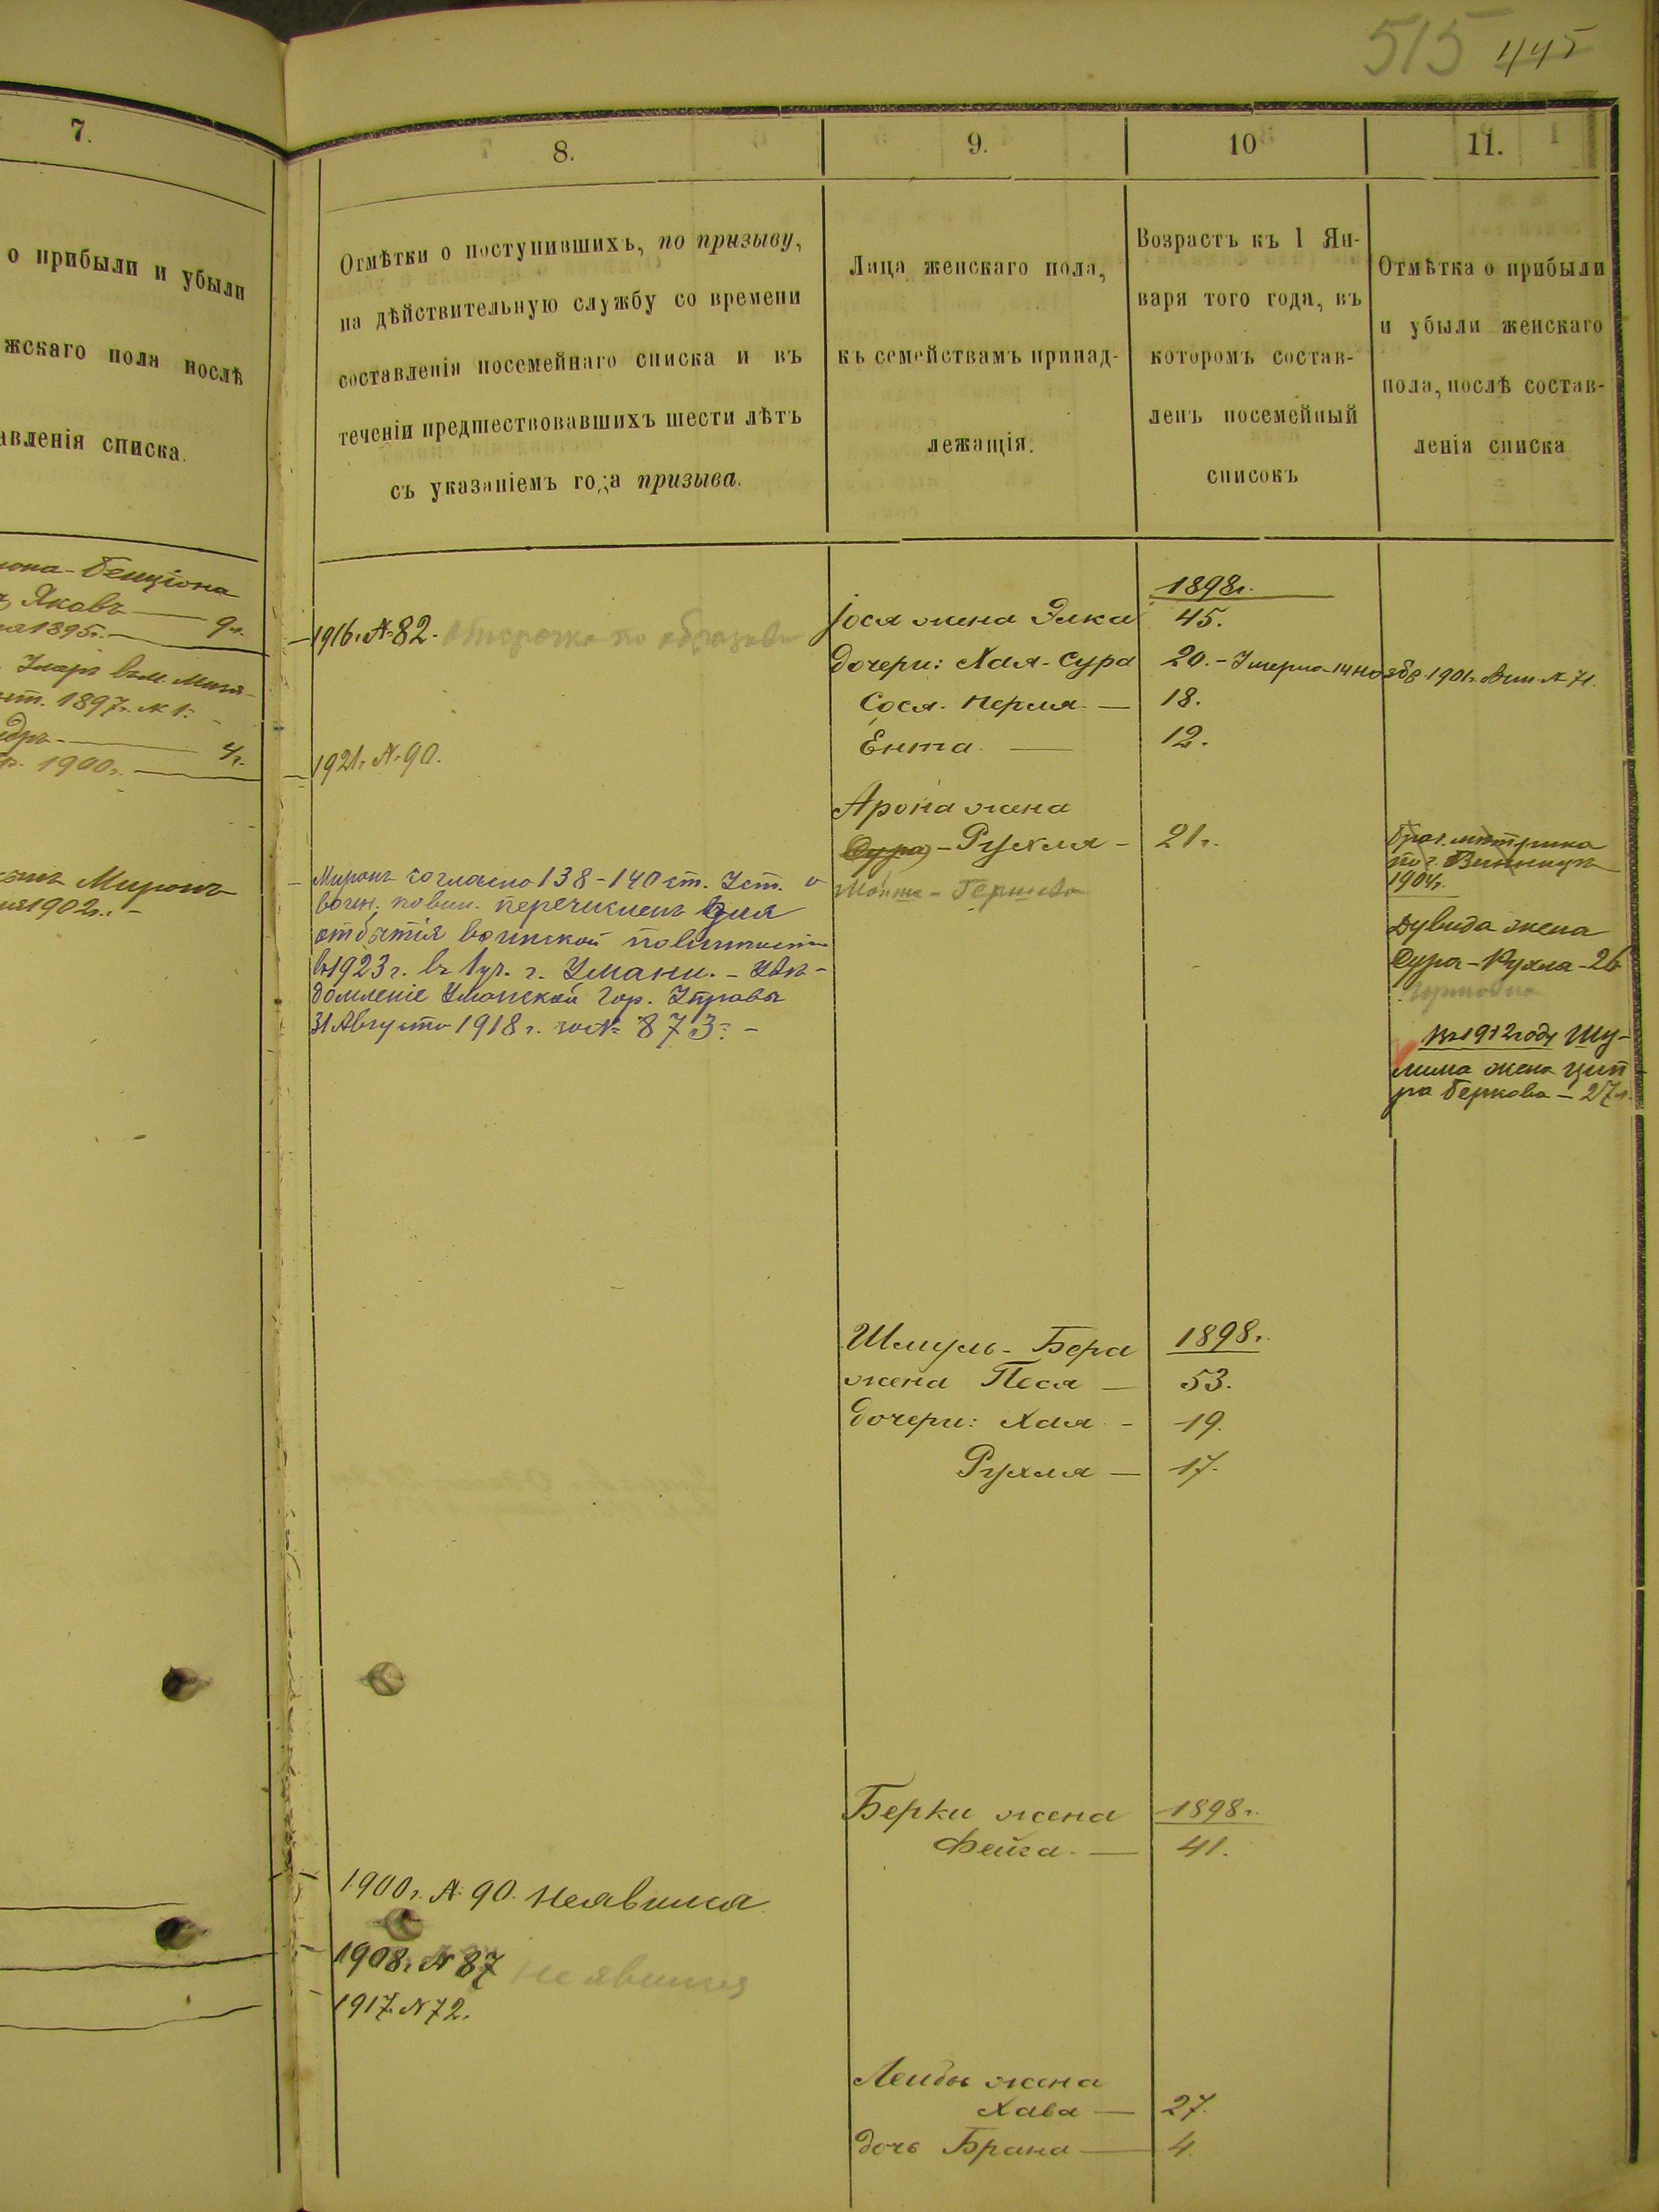 515 445
7.
о прибыли и убыли
жскаго пола послѣ
авленія списка.
иона-Бенціона
Яковъ — 9 г.
1895 г.
1897 г. № 1.
4 г.
1900 г.
Миронъ
1902 г.
8.
Отмѣтки о поступившихъ, по призыву,
на дѣйствительную службу со времени
составленія посемейнаго списка и въ
теченіи предшествовавшихъ шести лѣтъ
съ указаніемъ года призыва.
1916 г. № 82. Отсрочка по образов
1921 г. № 90.
Миронъ согласно 138-140 ст. Уст. о
воин. повин. перечисленъ для
отбытія воинской повинности
въ 1923 г. въ 1 уч. г. Умани. - Увѣ-
домленіе Уманской Гор. Управы
31 Августа 1918 г. за № 873. -
1900 г. № 90. Неявился
1908 г. № 87 Неявился
1917 г. № 72.
9.
Лица женскаго пола,
къ семействамъ принад-
лежащія.
Іося жена Элка
дочери: Хая-Сура
Сося-Перля —
Ента —
Арона жена
Сура - Рухля -
Гершкова
Шмуль-Бера
жена Песя —
дочери: Хая -
Рухля —
Берки жена
Фейга —
Лейбы жена
Хава —
дочь Брана —
10
Возрастъ къ 1 Ян-
варя того года, въ
которомъ состав-
ленъ посемейный
списокъ
1898 г.
45.
20. - Умерла 14 ноября 1901 г. Вин. № 71.
18.
12.
21 г.
1898 г.
53.
19.
17.
1898 г.
41.
27.
4.
11.
Отмѣтка о прибыли
и убыли женскаго
пола, послѣ состав-
ленія списка
Брач. метрика
по г. Винницѣ
1904 г.
Дувида жена
Сура-Рухля-26
Въ 1912 году Шу-
лима жена Цип-
ра Беркова - 27 г.